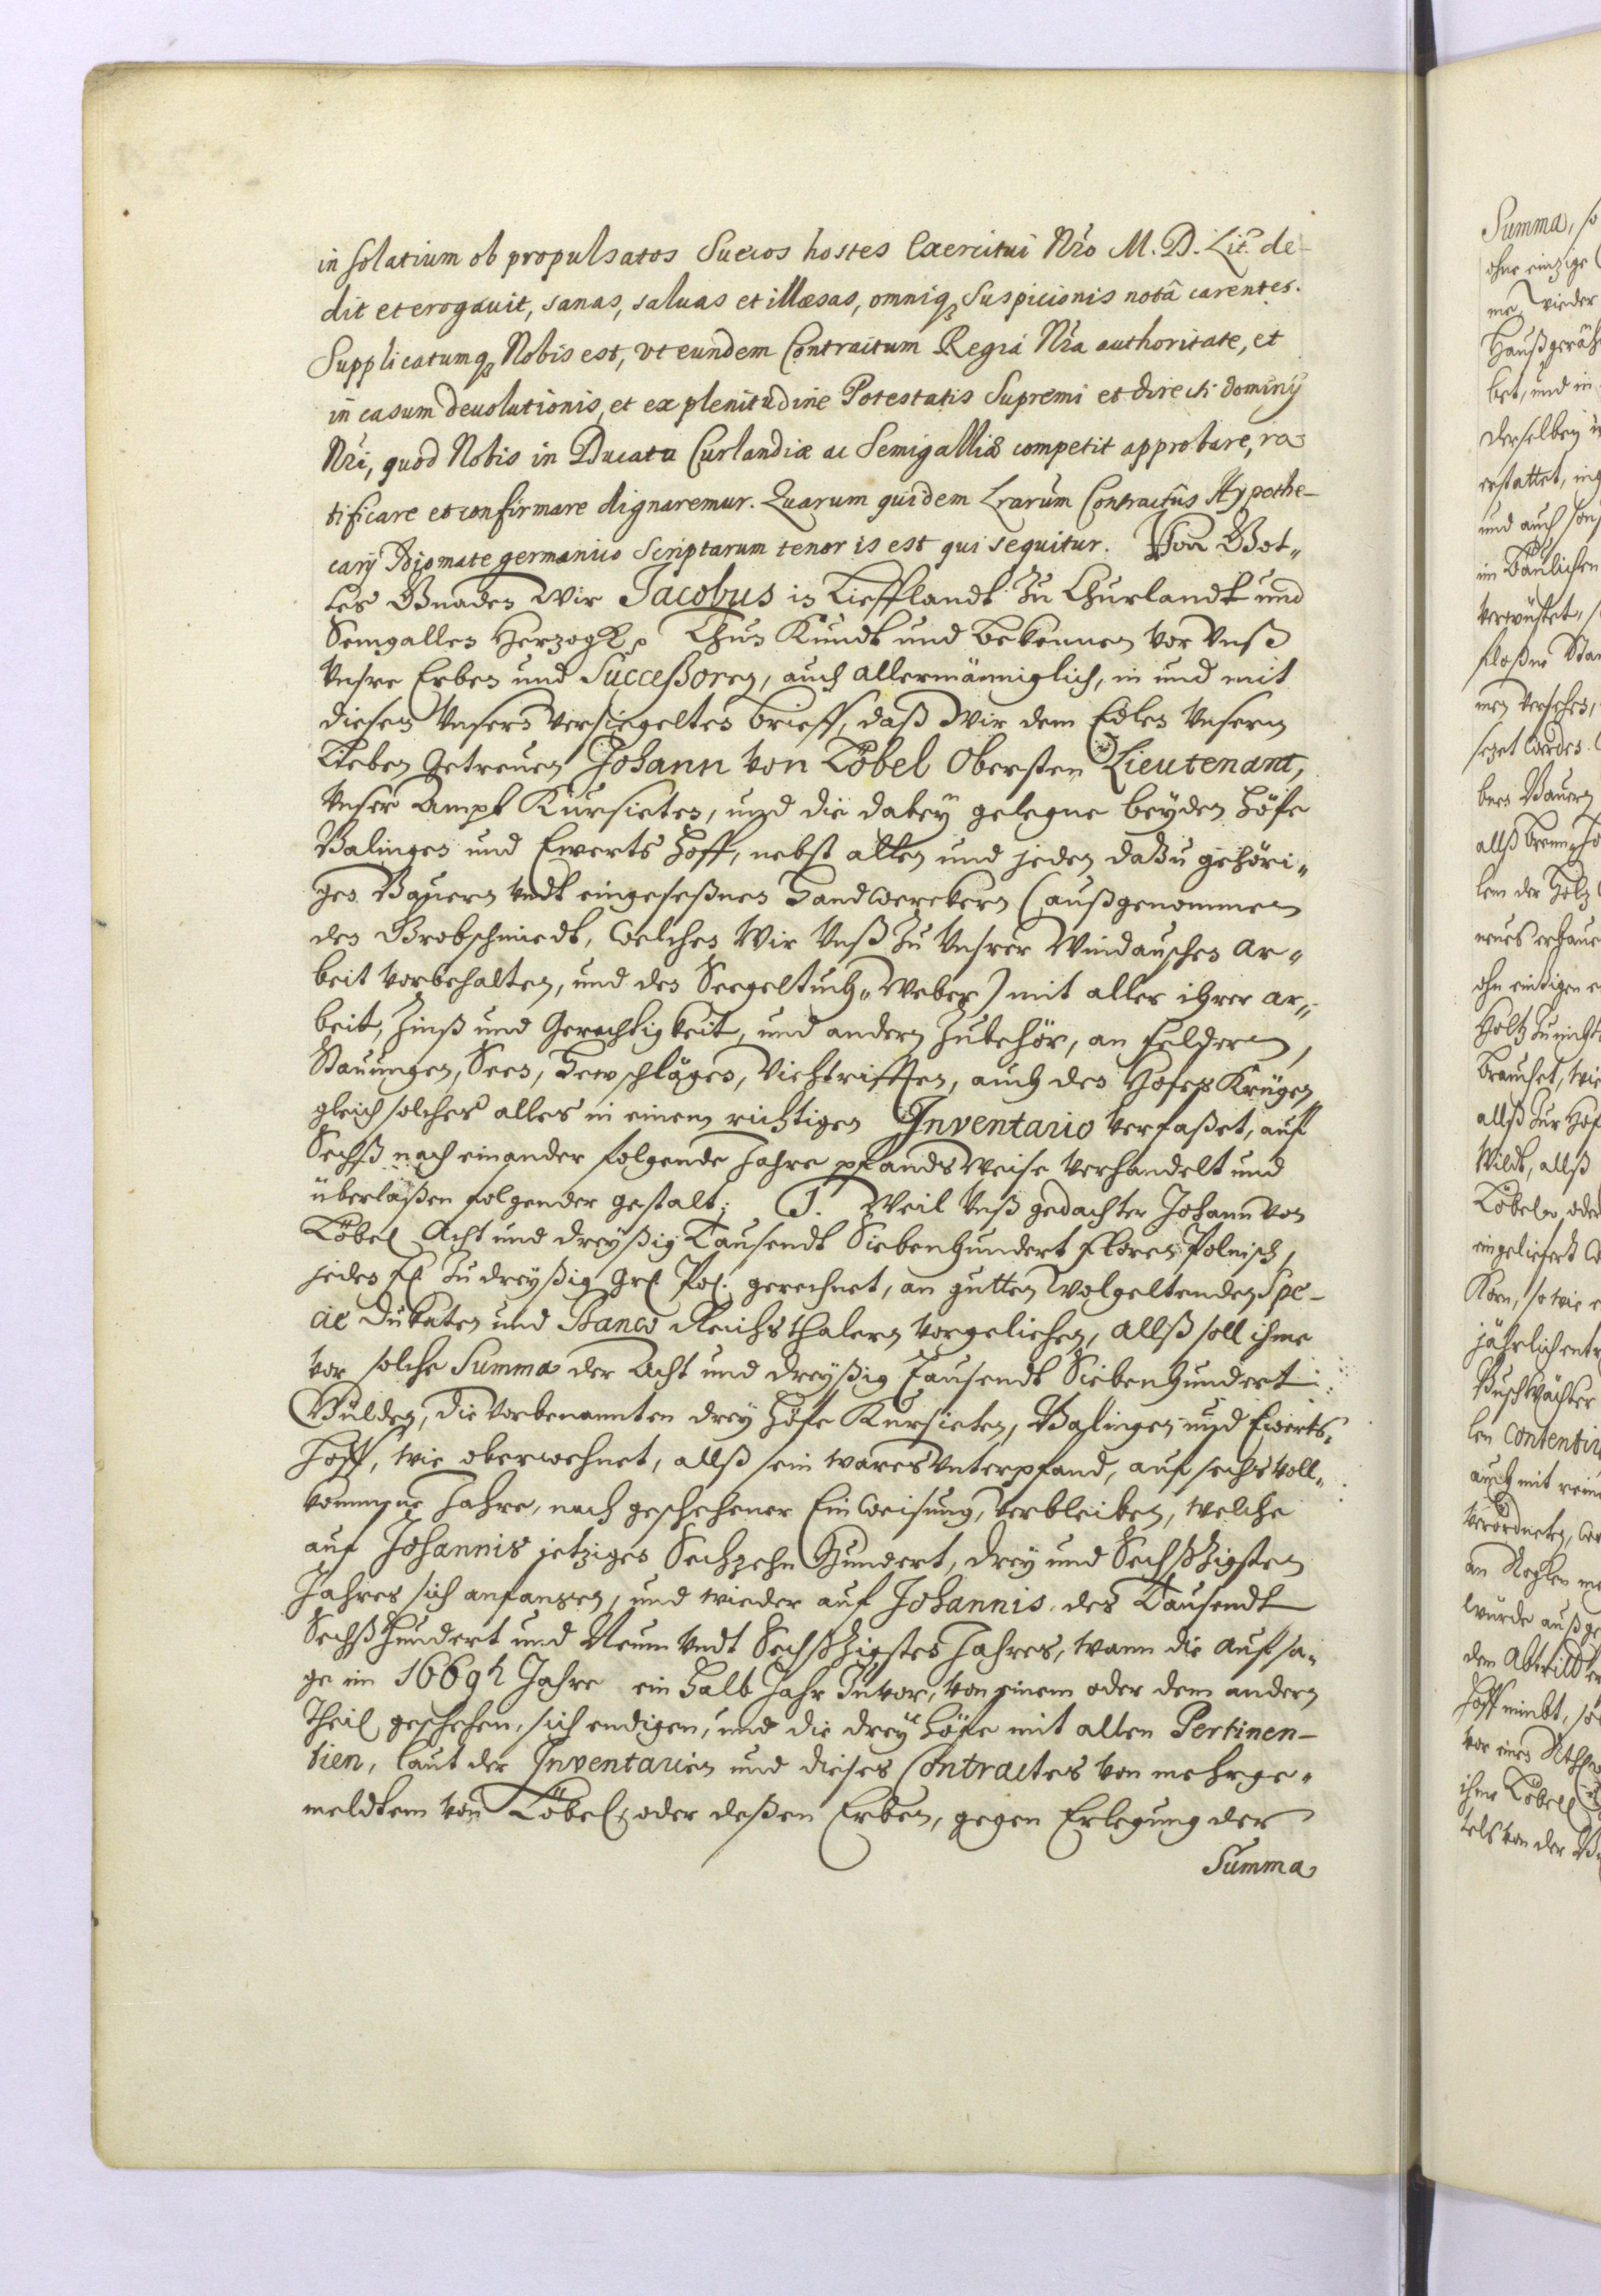 in solatium ob propulsatos Suecos hostes Exercitui Nro M. D. Lit. de-
dit et erogauit, sanas, saluas et illæsas, omniq suspicionis notâ carentes.
Supplicatumq Nobis est, vt eundem Contractum Regiâ Nra authoritate, et
in casum deuolutionis, et ex plenitudine Potestatis Supremi et directi dominij
Nri, quod Nobis in Ducatu Curlandiæ ac Semigalliæ competit approbare, ra-
tificare et confirmare dignaremur. Quarum quidem Lrarum Contractûs Hypothe-
carij Idiomate germanico scriptarum tenor is est qui sequitur. Von Got„
tes Gnaden Wir Jacobus in Liefflandt Zu Churlandt und
Semgallen Herzogk Thun Kundt und bekennen vor Vnß
Vnsre Erben und Succeßoren, auch allermänniglich, in und mit
diesen Vnsern versiegelten brieff, daß Wir dem Edlen Vnsern
Lieben Getreuen Johann von Löbel Obersten Lieutenant,
Vnser Ampt Kursieten, und die dabeÿ gelegne beÿden Höfe
Balingen und Ewerts Hoff, nebst allen und jeden daßu gehöri„
gen Bauern vndt eingeseßnen Handwerckern (außgenommen
den Grobschmiedt, welchen Wir Vnß Zu Vnsrer Windauschen Ar„
beit vorbehalten, und den Seegeltuch„Weber) mit aller ihrer Ar„
beit, Zinß und Gerechtigkeit, und andern Zubehör, an feldern,
Stauungen, Seen, Hewschlägen, Viehtrifften, auch des Hofes Krügen,
gleich solches alles in einem richtigen Inventario verfaßet, auf
Sechß nach einander folgende Jahre pfandsWeise verhandelt und
überlaßen folgender gestalt: I. Weil Vnß gedachter Johann von
Löbel Acht und dreÿßig Tausendt Siebenhundert floren Polnisch,
jeden fl Zu dreÿßig grl Pol. gerechnet, an gutten wolgeltenden Spe-
cie Dukaten und Banco Reichsthalern vorgeliehen, allß soll ihme
vor solche Summa der Acht und dreÿßig Tausendt Siebenhundert
Gulden, die vorbenannten dreÿ Höfe Kursieten, Balingen und Ewerts„
hoff, wie oberwehnet, allß sein wares Vnterpfand, auf sechs voll„
kommene Jahre, nach geschehener Einweisung, verbleiben, welche
auf Johannis jetziges Sechzehn Hundert, dreÿ und Sechßzigsten
Jahres sich anfangen, und wieder auf Johannis des Tausendt
Sechßhundert und Neun vndt Sechßzigsten Jahres, wann die Aufsa„
ge im 1669t Jahre ein Halb Jahr Zuvor, von einem oder dem andern
Theil geschehen, sich endigen, und die dreÿ Höfe mit allen Pertinen-
tien, laut der Inventarien und dieses Contractes von mehrge„
meldtem von Löbel, oder deßen Erben, gegen Erlegung der
Summa
Summa, so
ohne einzige
me, wieder
bet, und in
derselben
erstattet,
und auch
verwüstet,
men versehen,
ben Bauern
allß
ohn einßigen
Holtz Zu
brauchet, wie
allß Zur
Wildt, allß
Löbeln oder
eingeliefert
Korn, so wie
jährlich
Buschwächter
len
auch mit
Verordneten,
wurde auß
vor einen
ihme Löbell
tels von der